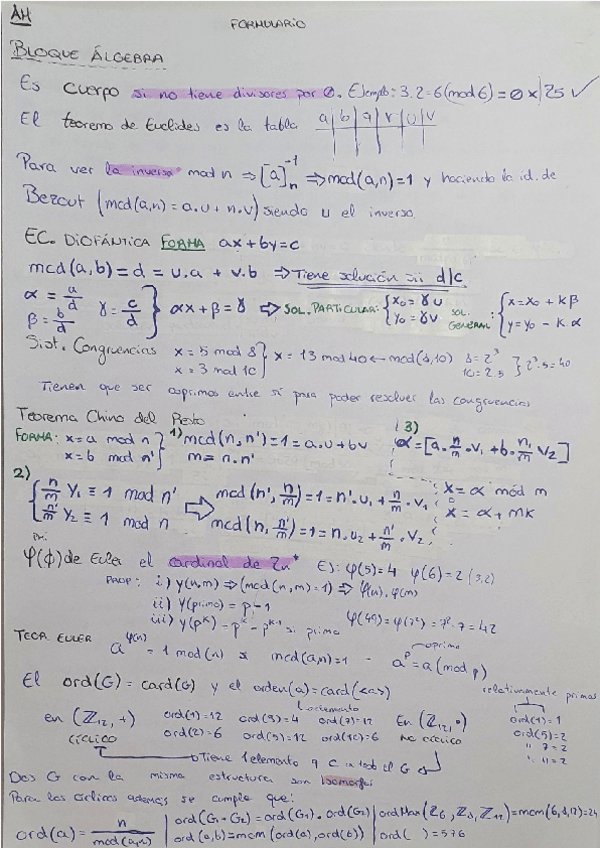 AH
FORMULARIO
BLOQUE ÁLGEBRA
Es cuerpo si no tiene divisores por 0. Ejemplo: 3.2=6(mod 6) = 0 x|25 ✓
El teorema de Euclides es la tabla a|b|q|r|u|v
Para ver la inversa mod n ⇒ [a]ₙ⁻¹ ⇒ mcd(a,n)=1 y haciendo la id. de
Bezout (mcd(a,n) = a.u + n.v) siendo u el inverso
EC. DIOFÁNTICA FORMA ax+by=c
mcd(a,b) = d = u.a + v.b ⇒ Tiene solución sii d|c
α = a/d β = b/d γ = c/d } αx + β = γ ⇨ SOL. PARTICULAR: { x₀ = γu y₀ = γv SOL. GENERAL: { x = x₀ + kβ y = y₀ - k.α
Sist. Congruencias x = 5 mod 8 x = 3 mod 10 } x = 13 mod 40 ← mcd(8,10) 8=2³ 10=2.5 } 2³.5=40
Tienen que ser coprimos entre sí para poder resolver las congruencias
Teorema Chino del Resto
FORMA: x = a mod n x = b mod n' } 1) mcd(n,n') = 1 = a.u + bv m = n.n'
3) α = [a.n/m.v₁ + b.n₁/m v₂]
2) { n/m y₁ ≡ 1 mod n' n'/m y₂ ≡ 1 mod n ⇨ mcd(n', n/m) = 1 = n'.u₁ + n/m.v₁ mcd(n, n'/m) = 1 = n.u₂ + n'/m.v₂
x = α mód m
x = α + mk
φ(ϕ) de Euler el cardinal de Zn* Ej: φ(5)=4 φ(6)=2 (3,2)
PROP: i.) φ(n,m) ⇒ (mcd(n,m)=1) ⇒ φ(n).φ(m)
ii) φ(primo) = p-1
iii) φ(pᵏ) = pᵏ - pᵏ⁻¹ si primo φ(49) = φ(7²) = 7² - 7 = 42
TEOR EULER a^φ(n) = 1 mod(n) mcd(a,n)=1 - aᵖ = a (mod p)
El ord(G) = card(G) y el orden(a) = card(<a>)
relativamente primos
en (Z₁₂, +) ord(1)=12 ord(3)=4 ord(7)=12 En (Z₁₂, •) ord(1)=1
cíclico ord(2)=6 ord(5)=12 ord(10)=6 no cíclico ord(5)=2
" 7=2
" 11=2
Tiene 1 elemento q c in todo el G
Dos G con la misma estructura son isomorfos
Para los cíclicos además se cumple que:
ord(a) = n/mcd(a,n) | ord(G₁×G₂) = ord(G₁).ord(G₂) | ordMax(Z₆, Z₈, Z₁₂) = mcm(6,8,12)=24
ord(a,b) = mcm(ord(a),ord(b)) | ord( ) = 576